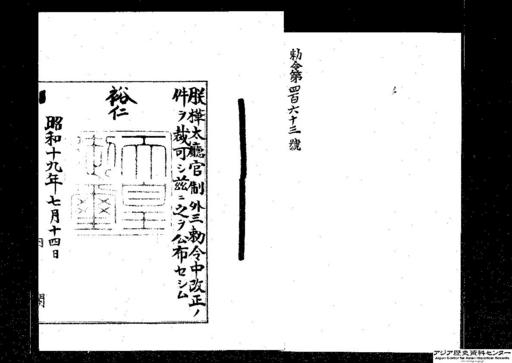 勅令第四百六十三號
朕樺太廳官制外三勅令中改正ノ
件ヲ裁可シ茲ニ之ヲ公布セシム
裕仁
昭和十九年七月十四日
アジア歴史資料センター
Japan Center for Asian Historical Records